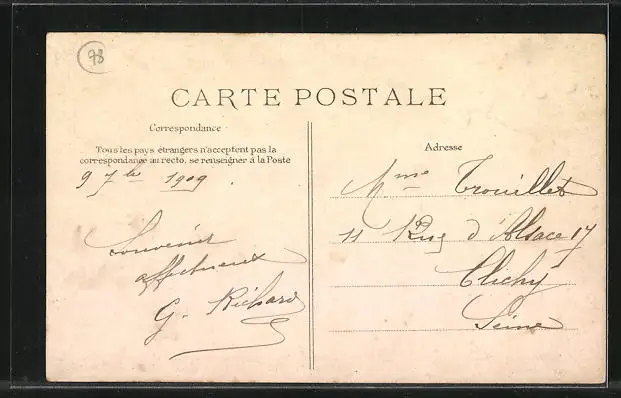 98
CARTE POSTALE
Correspondance
Tous les pays étrangers n'acceptent pas la
correspondance au recto, se renseigner à la Poste
9 7bre 1909.
Souvenir
affectueux
G. Richard
Adresse
Mme Trouillet
11 Rue d'Alsace 17
Clichy
Seine